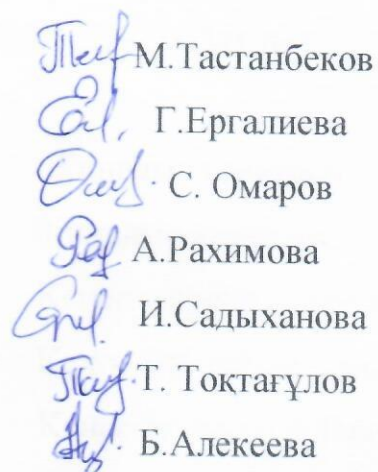 М.Тастанбеков
Г.Ергалиева
С. Омаров
А.Рахимова
И.Садыханова
Т. Тоқтағұлов
Б.Алекеева